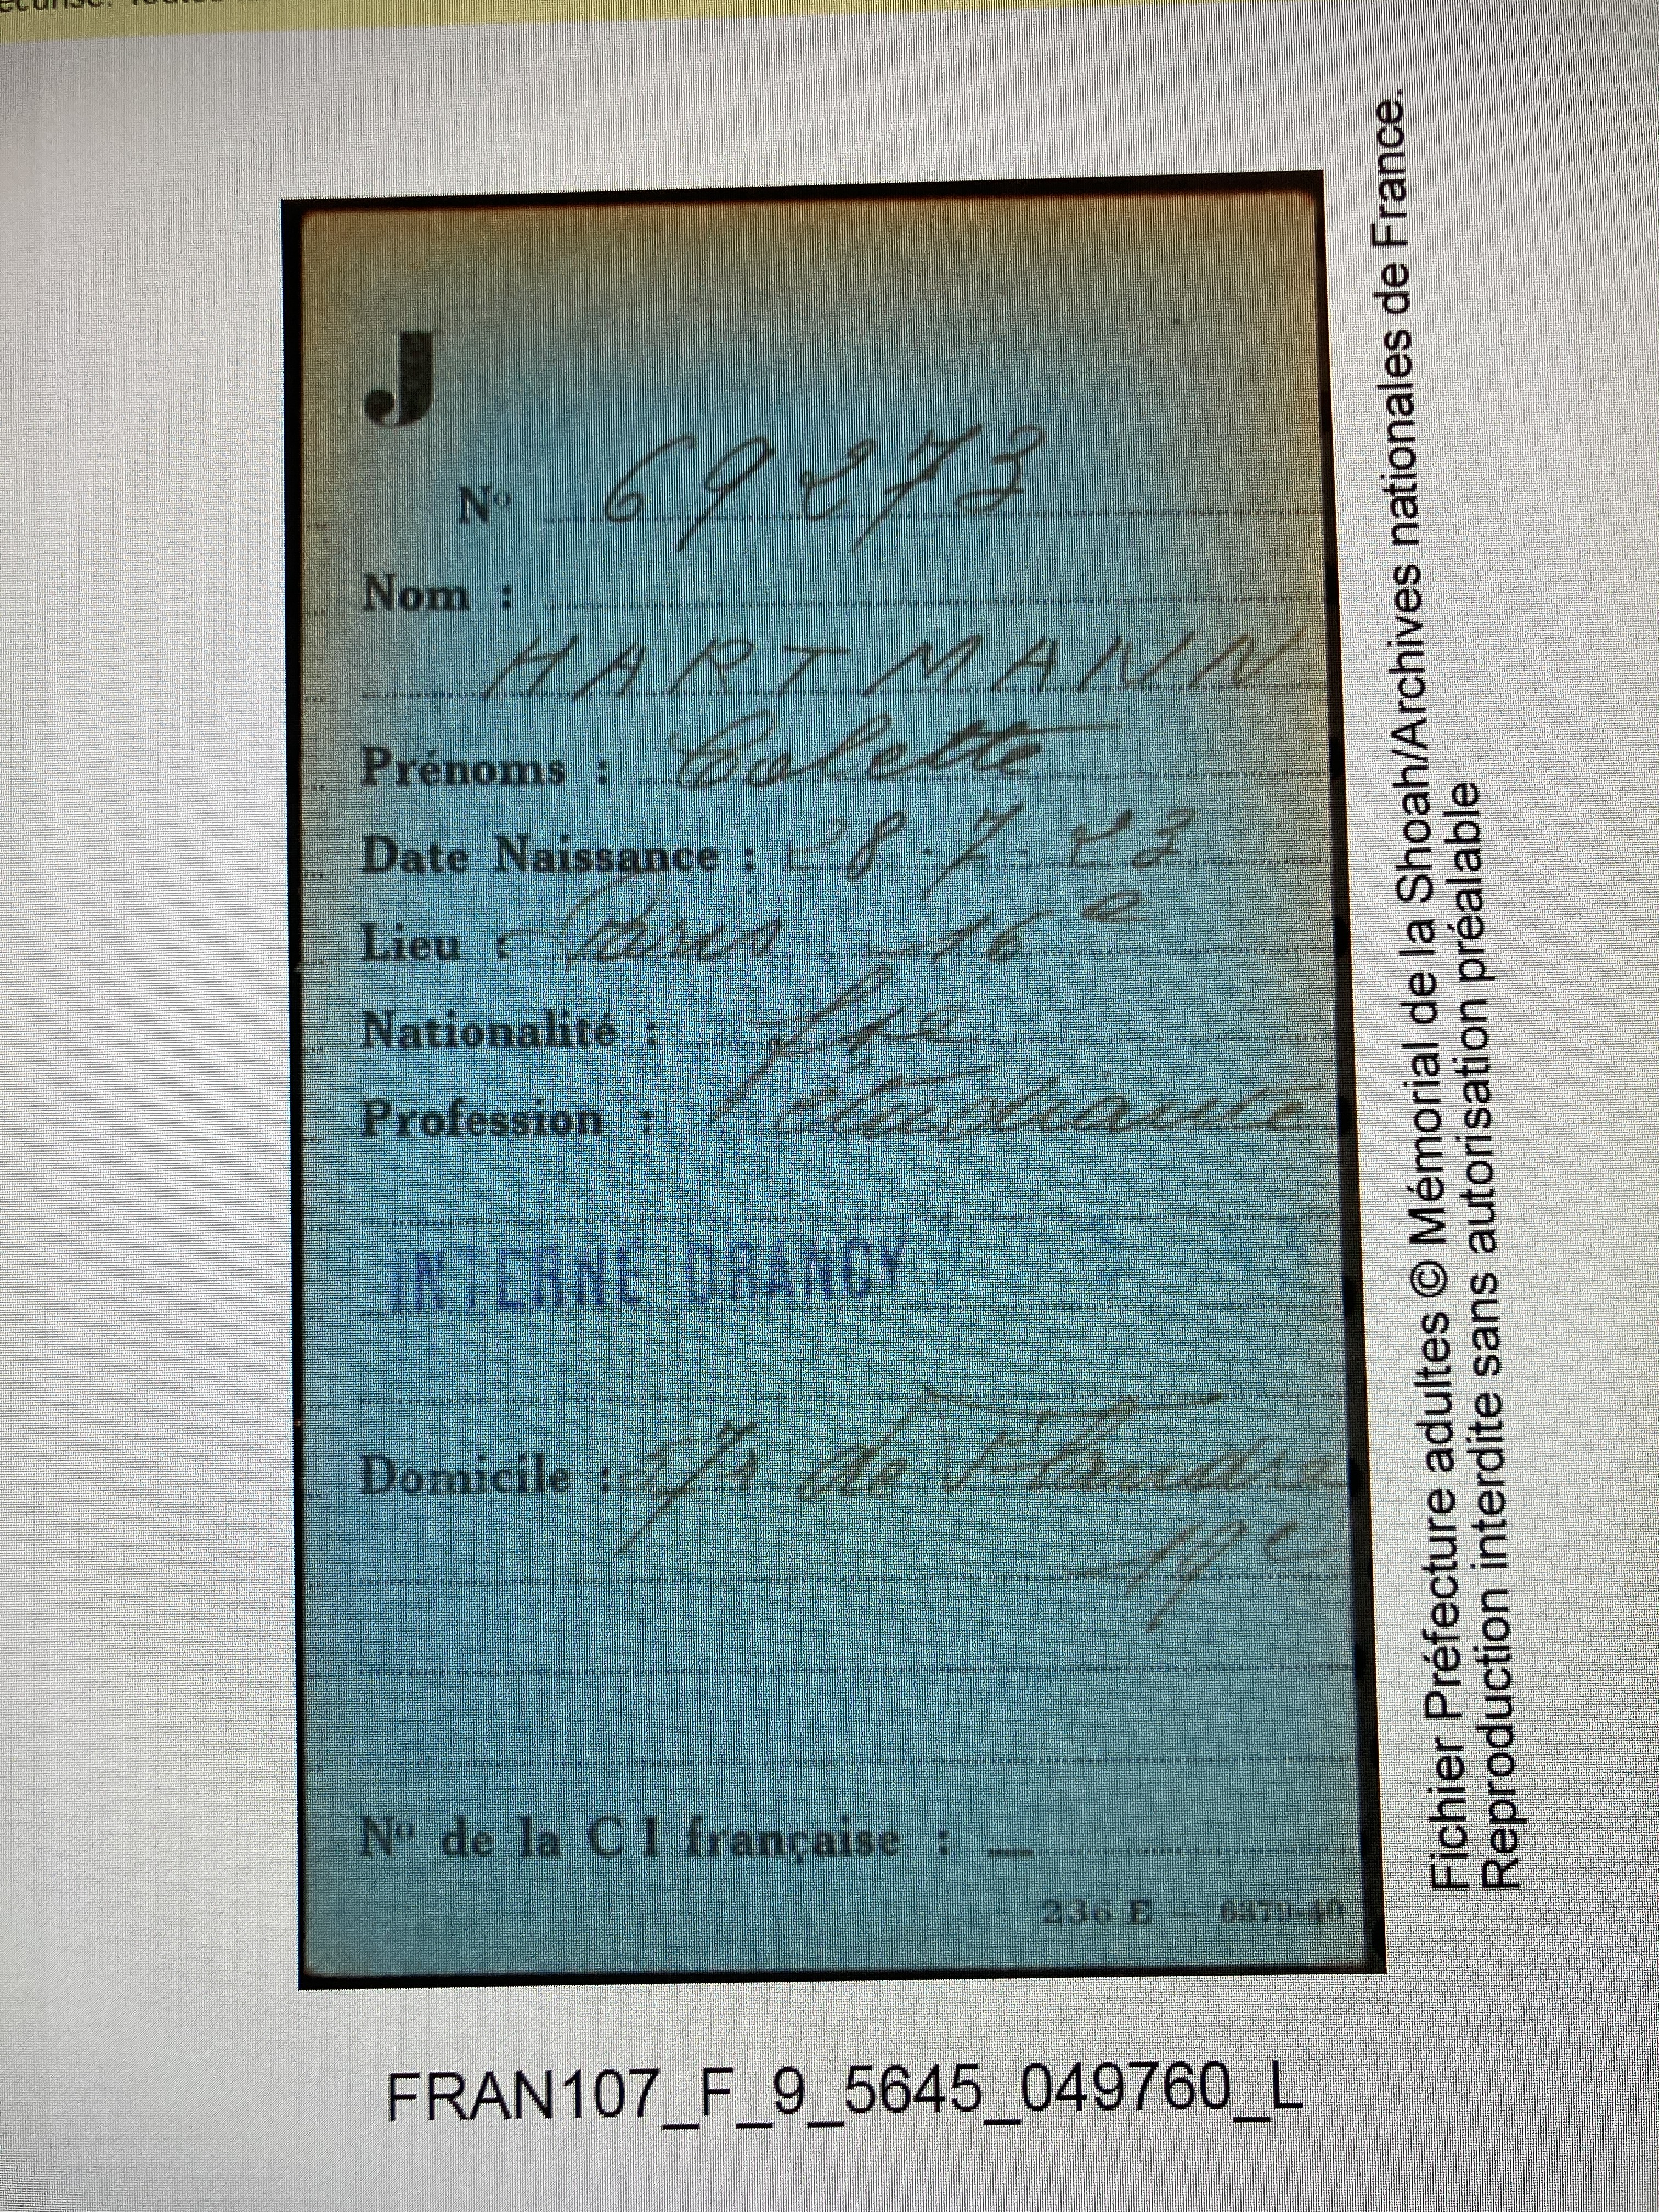 J
Nº 69273
Nom :
HARTMANN
Prénoms : Colette
Date Naissance : 28.7.23
Lieu : Paris 16e
Nationalité : fse
Profession : étudiante
INTERNÉ DRANCY
Domicile : r de Flandre
19e
Nº de la C I française : —
236 E — 6879-40
Fichier Préfecture adultes © Mémorial de la Shoah/Archives nationales de France.
Reproduction interdite sans autorisation préalable
FRAN107_F_9_5645_049760_L